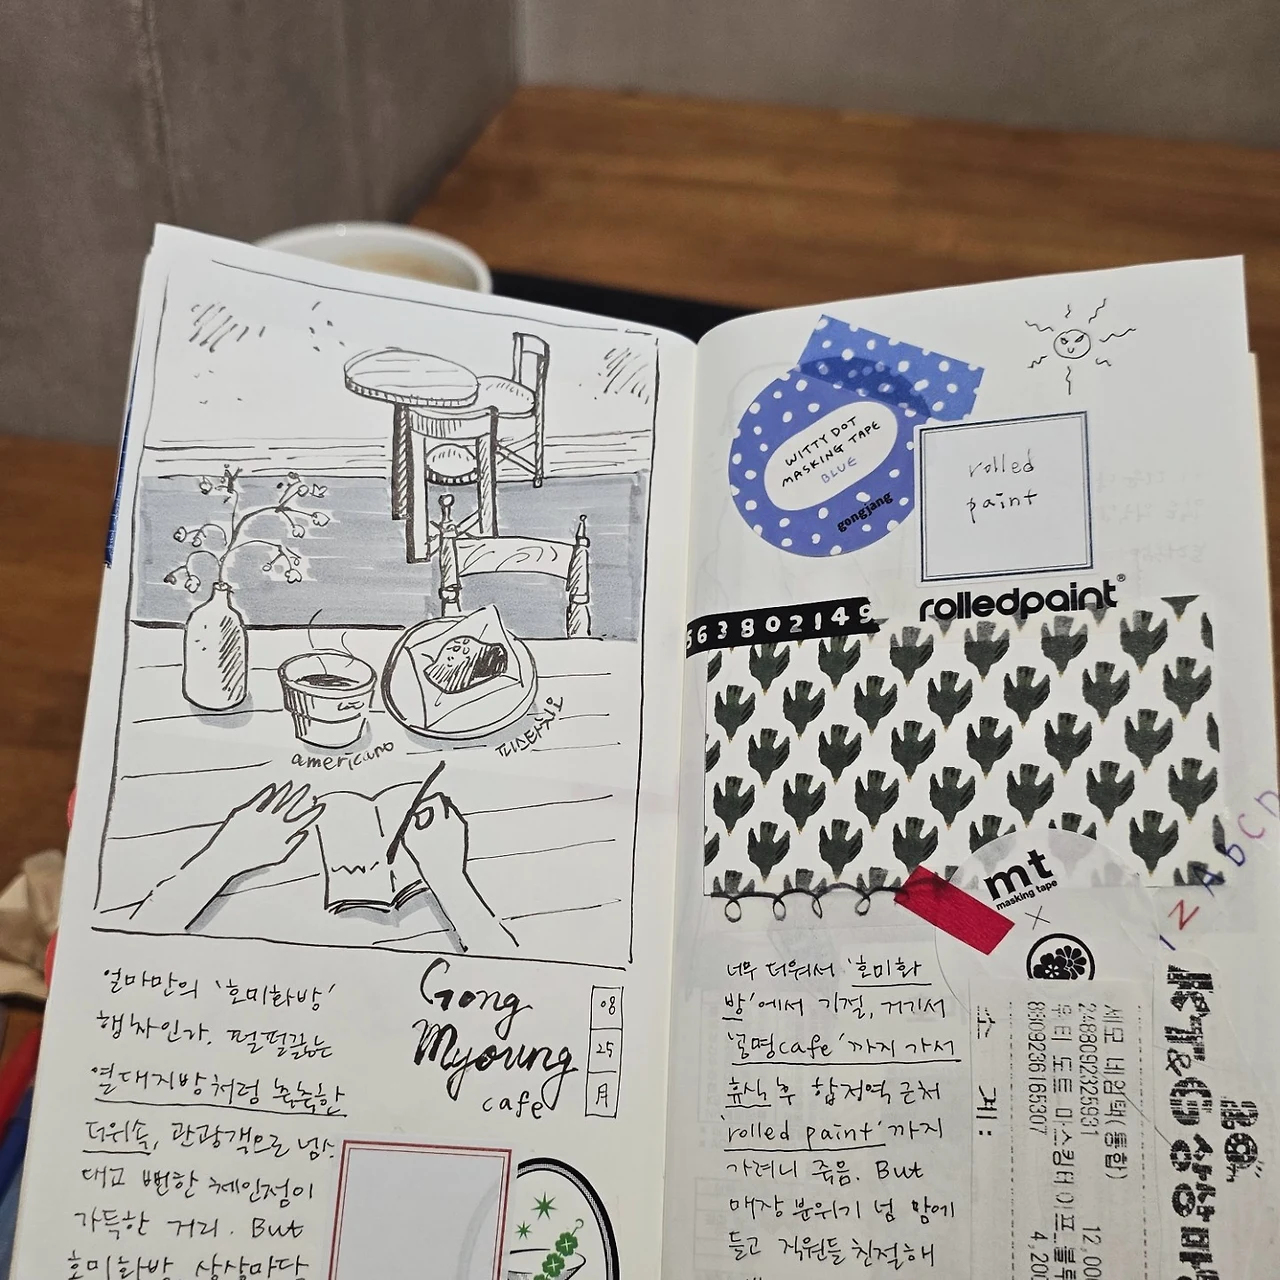 americano
피스타치오
얼마만의 '호미화방'
행차인가. 펄펄끓는
열대지방처럼 촉촉한
더위속, 관광객으로 넘
대고 뻔한 체인점이
가득한 거리. But
호미화방, 상상마당
Gong
Myoung
cafe
08
25
月
WITTY DOT
MASKING TAPE
BLUE
gongjang
rolled
paint
rolledpaint®
563802149
mt
masking tape
×
A b C D
너무 더워서 '호미화
방'에서 기절, 거기서
'공명cafe'까지 가서
휴식 후 합정역 근처
'rolled paint'까지
가려니 죽음. But
매장 분위기 넘 맘에
들고 직원들 친절해
세모 네임택(통합)
2488092325931 12,00
무티 도트 마스킹테이프_블루
8809236165307 4,20
계: